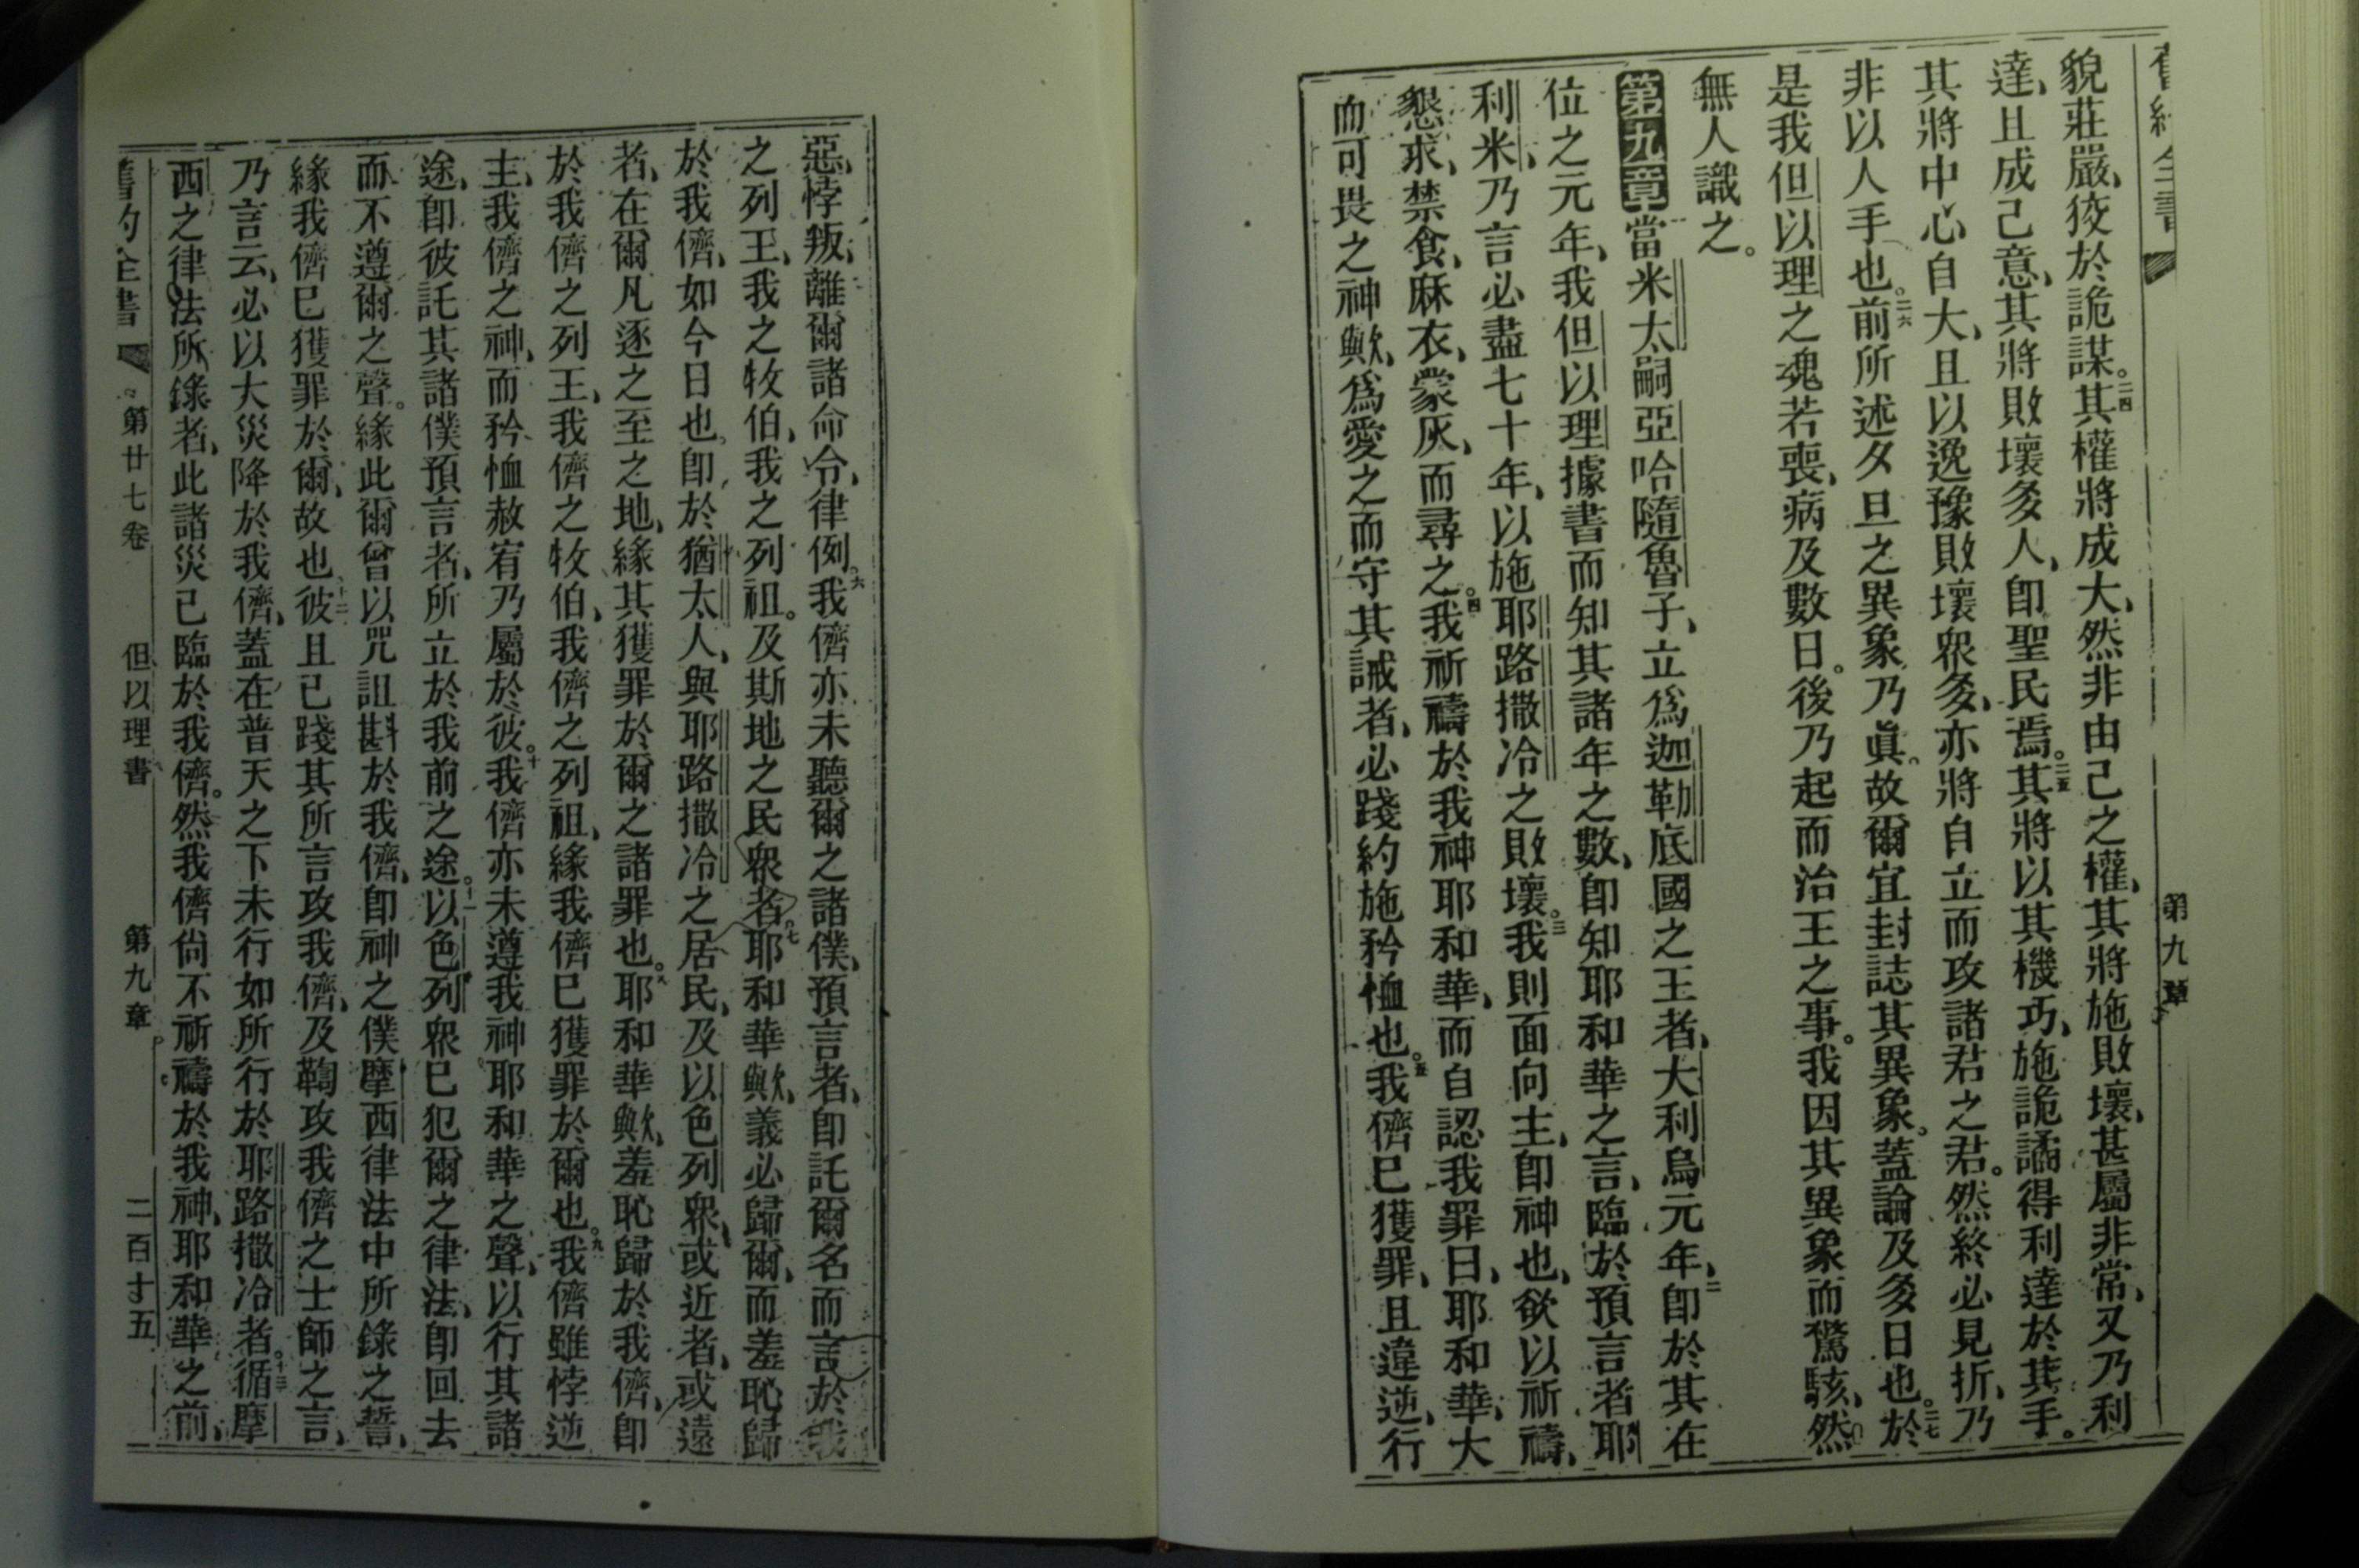 舊約全書
第九章
貌莊嚴、狡於詭謀。二四其權將成大、然非由己之權、其將施敗壞、甚屬非常、又乃利
達、且成己意、其將敗壞多人、卽聖民焉。二五其將以其機巧、施詭譎得利達於其手。
其將中心自大、且以逸豫敗壞眾多、亦將自立而攻諸君之君。然終必見折、乃
非以人手也。二六前所述夕旦之異象乃眞。故爾宜封誌其異象。蓋論及多日也。二七於
是我但以理之魂若喪、病及數日。後乃起而治王之事。我因其異象而驚駭、然
無人識之。
第九章當米太嗣亞哈隨魯子、立爲迦勒底國之王者、大利烏元年、二卽於其在
位之元年、我但以理據書而知其諸年之數、卽知耶和華之言、臨於預言者耶
利米、乃言必盡七十年、以施耶路撒冷之敗壞。三我則面向主、卽神也、欲以祈禱、
懇求、禁食、麻衣、蒙灰、而尋之。四我祈禱於我神耶和華、而自認我罪曰、耶和華、大
而可畏之神歟、爲愛之而守其誡者、必踐約施矜恤也。五我儕已獲罪、且違逆、行
惡、悖叛、離爾諸命令、律例。六我儕亦未聽爾之諸僕、預言者、卽託爾名而言於我
之列王、我之牧伯、我之列祖。及斯地之民眾者。七耶和華歟、義必歸爾、而羞恥歸
於我儕、如今日也。卽於猶太人、與耶路撒冷之居民、及以色列眾、或近者、或遠
者、在爾凡逐之至之地、緣其獲罪於爾之諸罪也。八耶和華歟、羞恥歸於我儕、卽
於我儕之列王、我儕之牧伯、我儕之列祖、緣我儕已獲罪於爾也。九我儕雖悖逆
主、我儕之神、而矜恤赦宥乃屬於彼。十我儕亦未遵我神耶和華之聲、以行其諸
途、卽彼託其諸僕預言者、所立於我前之途。十一以色列眾已犯爾之律法、卽回去
而不遵爾之聲。緣此爾曾以咒詛斟於我儕、卽神之僕摩西律法中所錄之誓、
緣我儕已獲罪於爾、故也。十二彼且已踐其所言攻我儕、及鞫攻我儕之士師之言、
乃言云、必以大災降於我儕、蓋在普天之下未行如所行於耶路撒冷者。十三循摩
西之律法所錄者、此諸災已臨於我儕。然我儕尚不祈禱於我神、耶和華之前、
舊約全書 第廿七卷 但以理書 第九章 二百十五